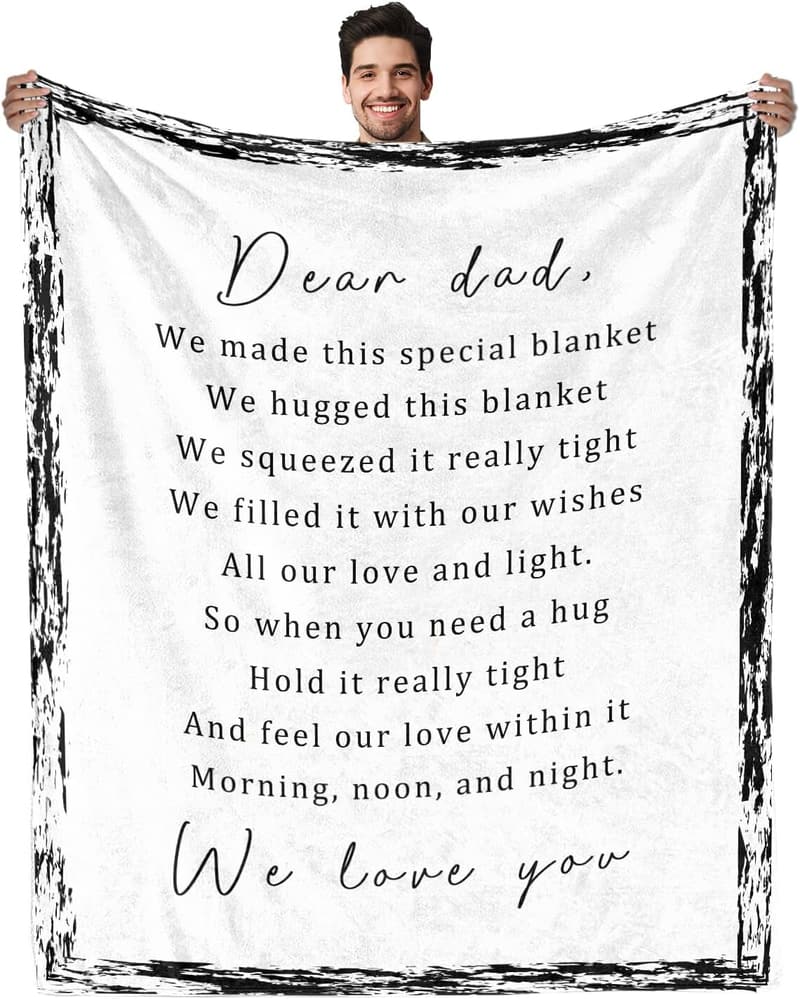 Dear dad,
We made this special blanket
We hugged this blanket
We squeezed it really tight
We filled it with our wishes
All our love and light.
So when you need a hug
Hold it really tight
And feel our love within it
Morning, noon, and night.
We love you